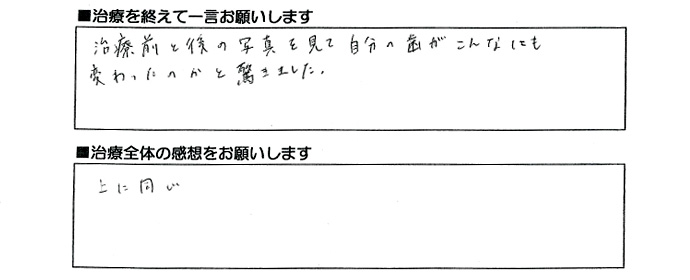 ■治療を終えて一言お願いします
治療前と後の写真を見て自分の歯がこんなにも
変わったのかと驚きました。
■治療全体の感想をお願いします
上に同じ